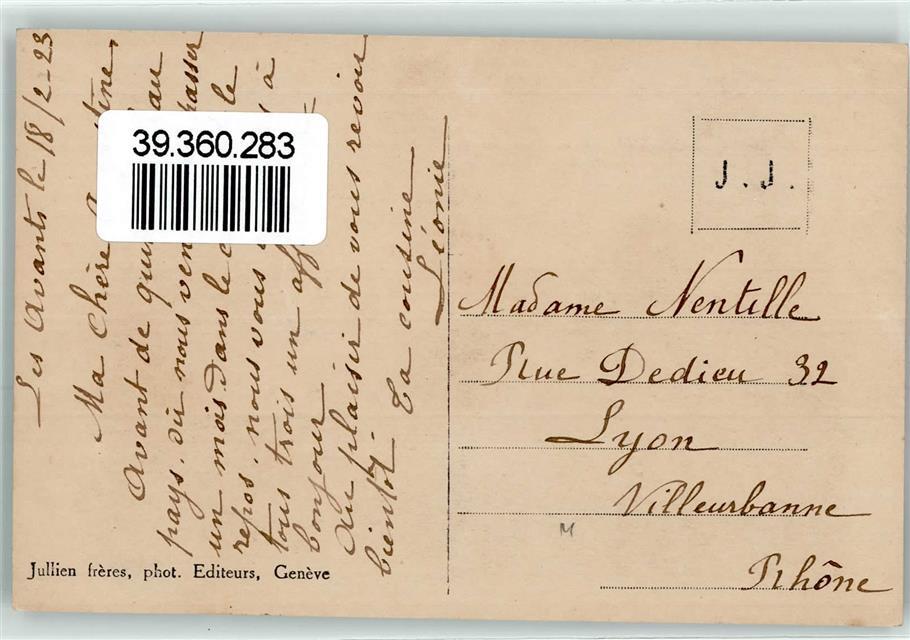 Les Avants le 18/2-23
Ma Chère
Avant de au
pays. où nous passer
un mois dans le le
repos. nous vous à
tous trois un
bonjour
Au plaisir de vous revoir
bientôt. Ta cousine
Léonie
39.360.283
J.J.
Madame Nentille
Rue Dedieu 32
Lyon
Villeurbanne
Rhône
M
Jullien frères, phot. Editeurs, Genève